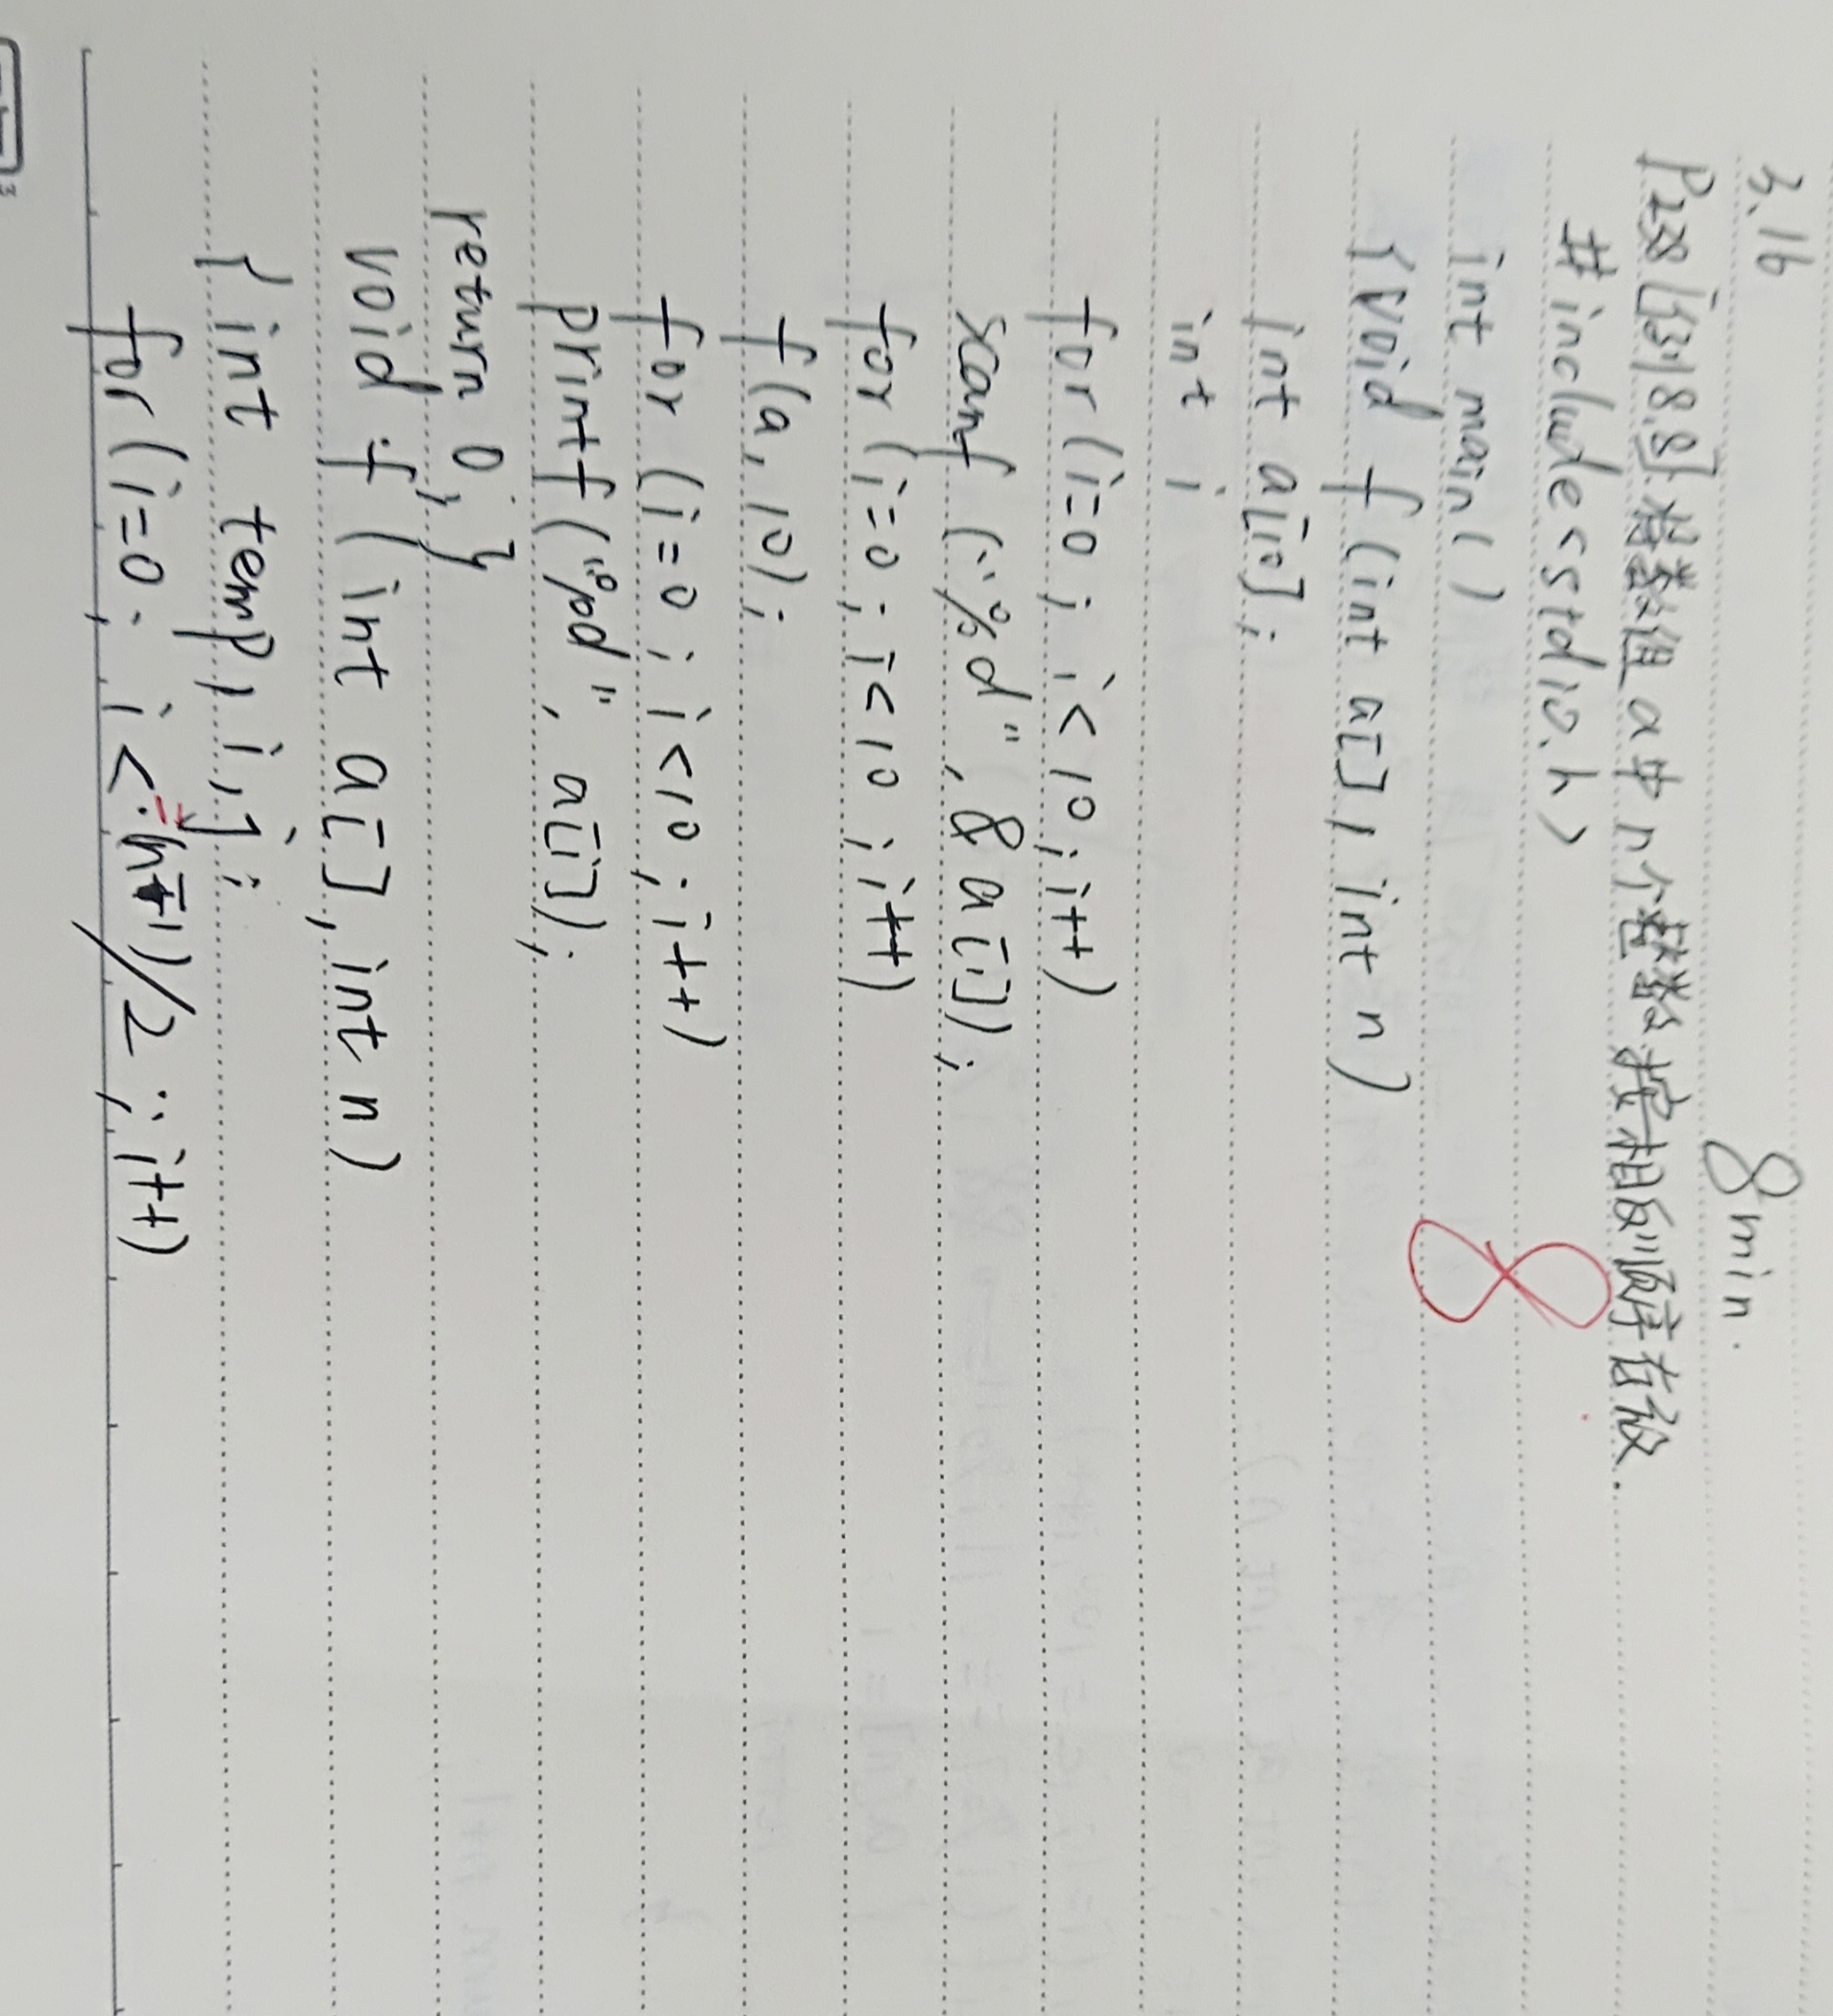 3.16
8min.
P228 例8.8 将数值a中n个整数按相反顺序存放.
8
#include<stdio.h>
int main()
{void f(int a[], int n)
int a[10];
int i
for(i=0; i<10; i++)
scanf("%d", &a[i]);
for(i=0; i<10; i++)
f(a,10);
for(i=0; i<10; i++)
printf("%d", a[i]);
return 0;}
void f(int a[], int n)
{int temp, i, j;
for(i=0; i<(n-1)/2; i++)